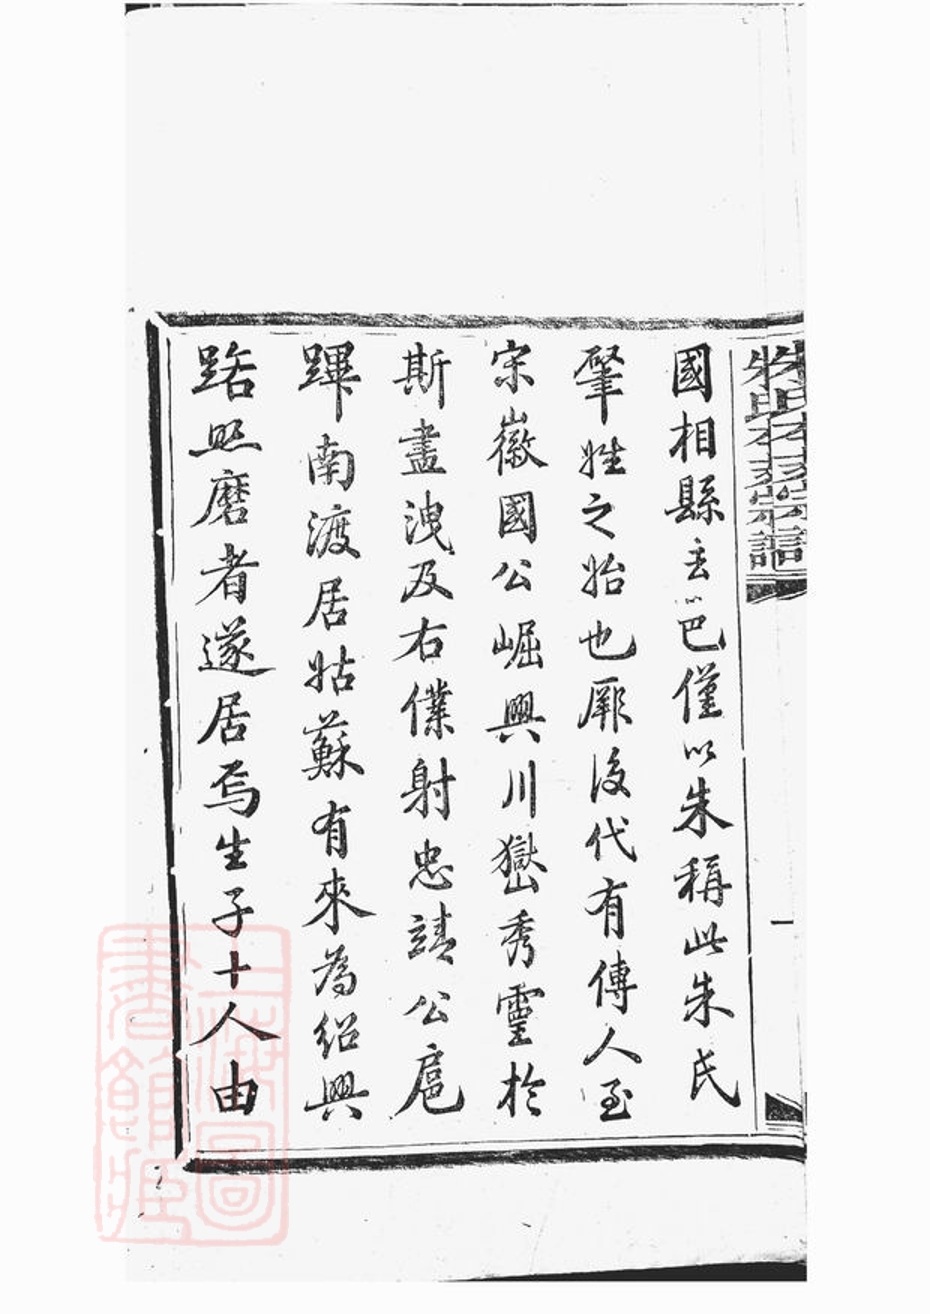 國相縣去巴僅以朱稱此朱氏
肇姓之始也厥後代有傳人至
宋徽國公崛興川嶽秀靈於
斯盡洩及右僕射忠靖公扈
蹕南渡居姑蘇有來為紹興
路照磨者遂居焉生子十人由
上海圖
書館藏